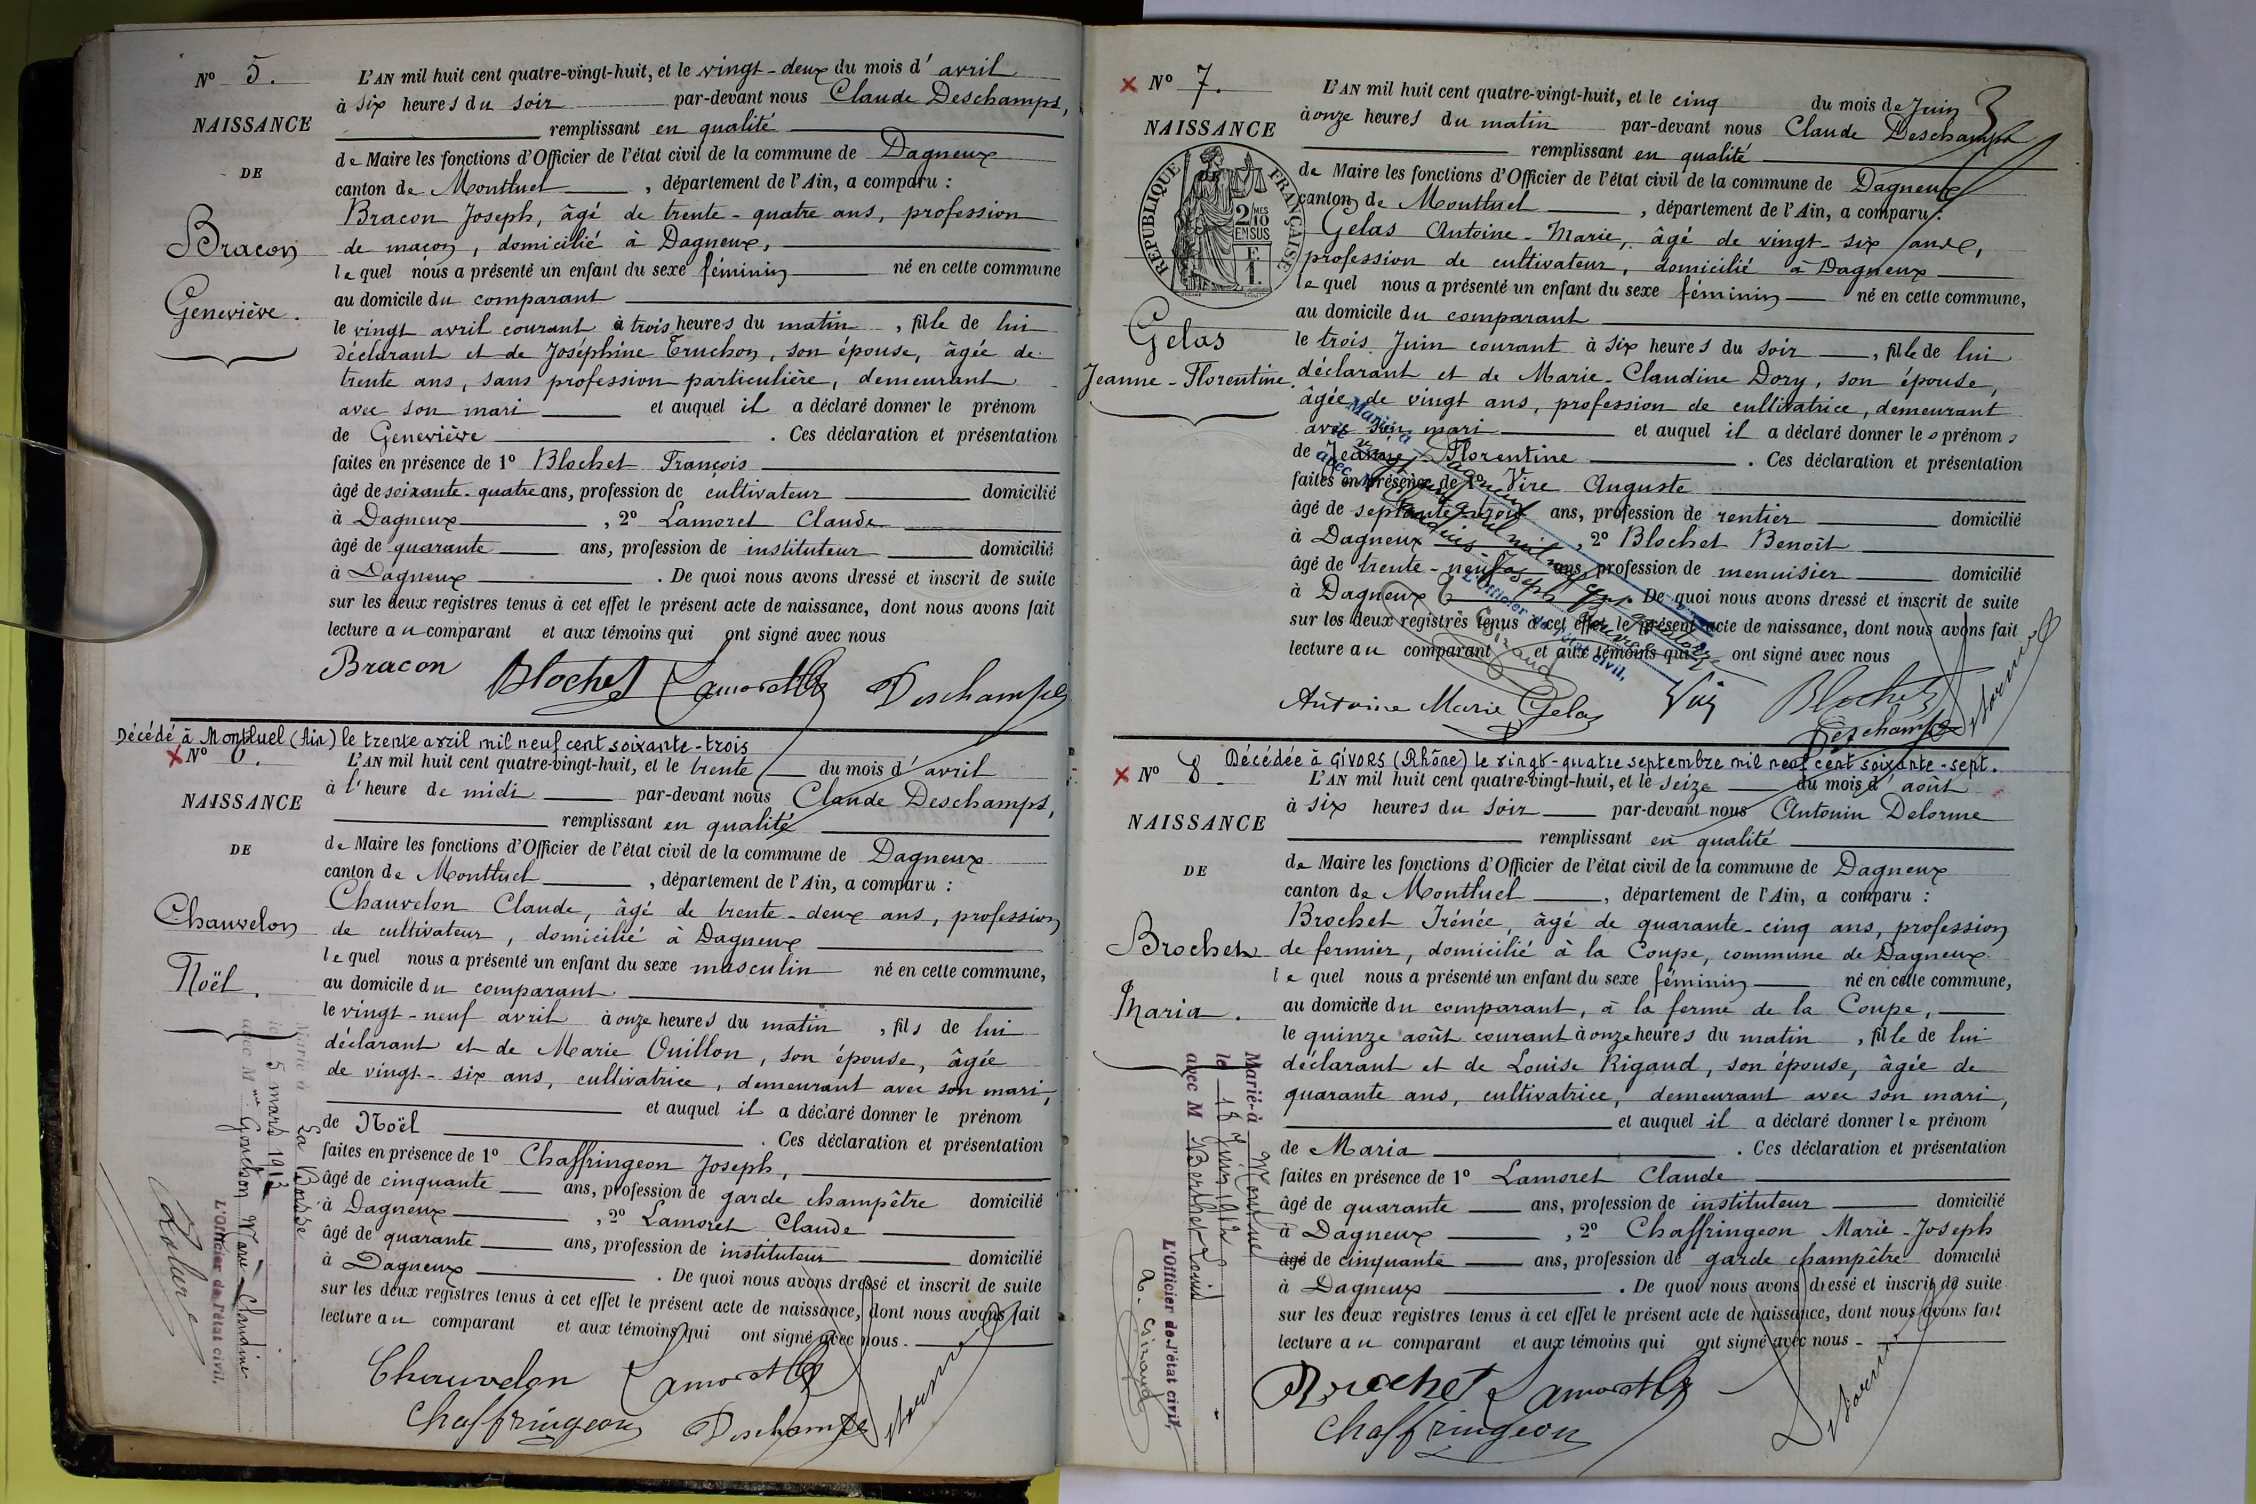 N° 5.
NAISSANCE
DE
Bracon
Geneviève.
L'AN mil huit cent quatre-vingt-huit, et le vingt-deux du mois d'avril
à six heures du soir par-devant nous Claude Deschamps,
remplissant en qualité
de Maire les fonctions d'Officier de l'état civil de la commune de Dagneux
canton de Montluel, département de l'Ain, a comparu :
Bracon Joseph, âgé de trente-quatre ans, profession
de maçon, domicilié à Dagneux,
lequel nous a présenté un enfant du sexe féminin né en cette commune
au domicile du comparant
le vingt avril courant à trois heures du matin, fille de lui
déclarant et de Joséphine Truchon, son épouse, âgée de
trente ans, sans profession particulière, demeurant
avec son mari et auquel il a déclaré donner le prénom
de Geneviève. Ces déclaration et présentation
faites en présence de 1° Blochet François
âgé de soixante-quatre ans, profession de cultivateur domicilié
à Dagneux, 2° Lamoret Claude
âgé de quarante ans, profession de instituteur domicilié
à Dagneux. De quoi nous avons dressé et inscrit de suite
sur les deux registres tenus à cet effet le présent acte de naissance, dont nous avons fait
lecture au comparant et aux témoins qui ont signé avec nous
Bracon Blochet Lamoret Cl Deschamps
Décédé à Montluel (Ain) le trente avril mil neuf cent soixante-trois
N° 6.
NAISSANCE
DE
Chauvelon
Noël.
Marié à La Boisse
le 5 mars 1913
avec Mme Gonchon Marie Claudine
L'Officier de l'état civil,
L'AN mil huit cent quatre-vingt-huit, et le trente du mois d'avril
à l'heure de midi par-devant nous Claude Deschamps,
remplissant en qualité
de Maire les fonctions d'Officier de l'état civil de la commune de Dagneux
canton de Montluel, département de l'Ain, a comparu :
Chauvelon Claude, âgé de trente-deux ans, profession
de cultivateur, domicilié à Dagneux
lequel nous a présenté un enfant du sexe masculin né en cette commune,
au domicile du comparant
le vingt-neuf avril à onze heures du matin, fils de lui
déclarant et de Marie Ouillon, son épouse, âgée
de vingt-six ans, cultivatrice, demeurant avec son mari,
et auquel il a déclaré donner le prénom
de Noël. Ces déclaration et présentation
faites en présence de 1° Chaffringeon Joseph,
âgé de cinquante ans, profession de garde champêtre domicilié
à Dagneux, 2° Lamoret Claude
âgé de quarante ans, profession de instituteur domicilié
à Dagneux. De quoi nous avons dressé et inscrit de suite
sur les deux registres tenus à cet effet le présent acte de naissance, dont nous avons fait
lecture au comparant et aux témoins qui ont signé avec nous.
Chauvelon Lamoret Cl
Chaffringeon Deschamps
3
N° 7.
NAISSANCE
RÉPUBLIQUE FRANÇAISE
2/10 MES
EN SUS
Gelas
Jeanne-Florentine.
L'AN mil huit cent quatre-vingt-huit, et le cinq du mois de Juin
à onze heures du matin par-devant nous Claude Deschamps
remplissant en qualité
de Maire les fonctions d'Officier de l'état civil de la commune de Dagneux
canton de Montluel, département de l'Ain, a comparu :
Gelas Antoine-Marie, âgé de vingt-six ans,
profession de cultivateur, domicilié à Dagneux
lequel nous a présenté un enfant du sexe féminin né en cette commune,
au domicile du comparant
le trois Juin courant à six heures du soir, fille de lui
déclarant et de Marie-Claudine Dory, son épouse,
âgée de vingt ans, profession de cultivatrice, demeurant
avec son mari et auquel il a déclaré donner les prénoms
de Jeanne-Florentine. Ces déclaration et présentation
faites en présence de 1° Vire Auguste
âgé de septante-trois ans, profession de rentier domicilié
à Dagneux, 2° Blochet Benoît
âgé de trente-neuf ans, profession de menuisier domicilié
à Dagneux. De quoi nous avons dressé et inscrit de suite
sur les deux registres tenus à cet effet le présent acte de naissance, dont nous avons fait
lecture au comparant et aux témoins qui ont signé avec nous
L'Officier de l'état civil,
Antoine Marie Gelas Blochet
Deschamps
Décédée à GIVORS (Rhône) le vingt-quatre septembre mil neuf cent soixante-sept.
N° 8
NAISSANCE
DE
Brochet
Maria.
Marié à Montluel
le 18 Juin 1912
avec M Berthet Louis
L'Officier de l'état civil,
L'AN mil huit cent quatre-vingt-huit, et le seize du mois d'août
à six heures du soir par-devant nous Antonin Delorme
remplissant en qualité
de Maire les fonctions d'Officier de l'état civil de la commune de Dagneux
canton de Montluel, département de l'Ain, a comparu :
Brochet Irénée, âgé de quarante-cinq ans, profession
de fermier, domicilié à la Coupe, commune de Dagneux.
lequel nous a présenté un enfant du sexe féminin né en cette commune,
au domicile du comparant, à la ferme de la Coupe,
le quinze août courant à onze heures du matin, fille de lui
déclarant et de Louise Rigaud, son épouse, âgée de
quarante ans, cultivatrice, demeurant avec son mari,
et auquel il a déclaré donner le prénom
de Maria. Ces déclaration et présentation
faites en présence de 1° Lamoret Claude
âgé de quarante ans, profession de instituteur domicilié
à Dagneux, 2° Chaffringeon Marie-Joseph
âgé de cinquante ans, profession de garde champêtre domicilié
à Dagneux. De quoi nous avons dressé et inscrit de suite
sur les deux registres tenus à cet effet le présent acte de naissance, dont nous avons fait
lecture au comparant et aux témoins qui ont signé avec nous -
Brochet Lamoret Cl
Chaffringeon